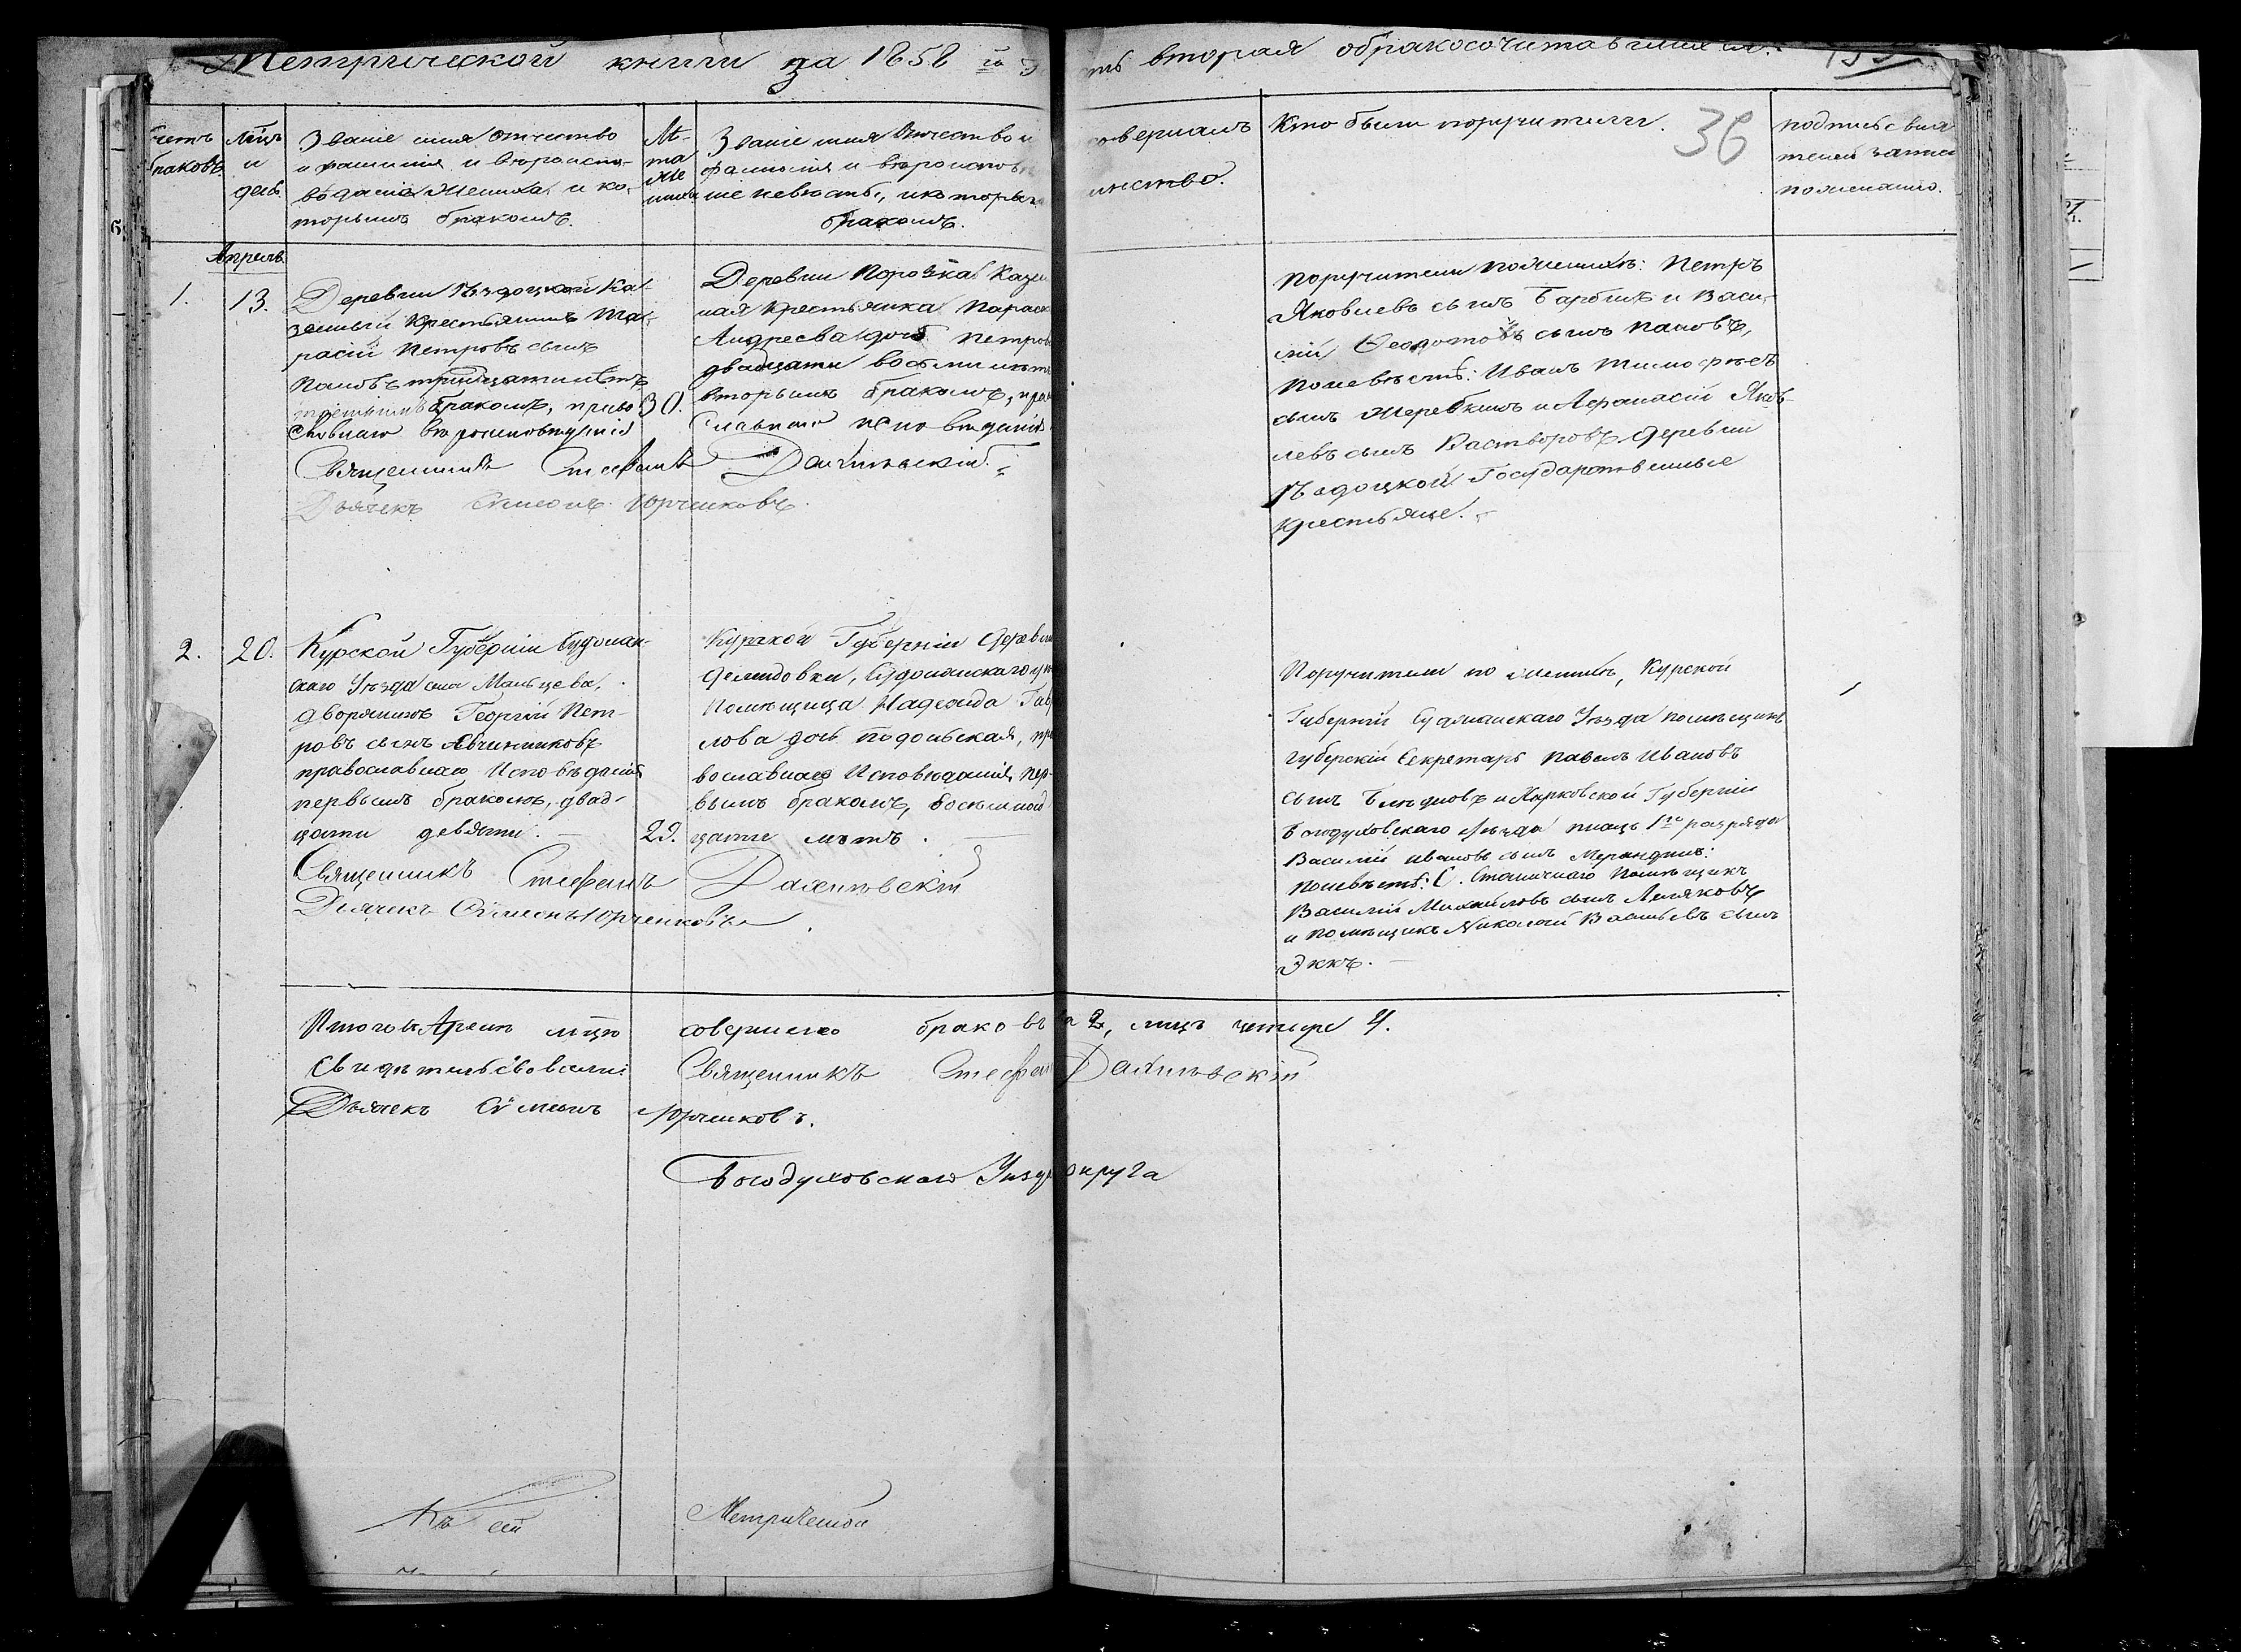 Метрической книги за 1858 й
ть вторая о бракосочитавшихся.
счетъ
браковъ
М-цъ
и
день
Званіе имя отчество
и фамилія и вѣроиспо-
вѣданіе жениха и ко-
торымъ бракомъ.
Лѣ-
та
же
ниха
Званіе имя Отчество и
фамилія и вѣроисповѣ
ніе невѣсты, и которы
бракомъ.
совершалъ
инство.
Кто были поручители.
36
подпись свидѣ
телей запис
пожеланію.
Апрель
1.
13.
Деревни Ка-
зенный Крестьянинъ Та-
расій Петровъ сынъ
Пановъ тридцати лѣтъ
третьимъ бракомъ, право
славнаго вѣроисповѣданія
30.
Деревни Порозка Казен
ная Крестьянка Параск
Андреева дочь Петров
двадцати восьми лѣтъ
вторымъ бракомъ, прав
славнаго исповѣданія
Священникъ Стефанъ
Дьячекъ Сѵмеонъ Юрченковъ.
Поручители по женихѣ: Петръ
Яковлевъ сынъ и Васи-
лій Ѳеодотовъ сынъ Пановъ,
по невѣстѣ: Иванъ Тимофѣевъ
сынъ Жеребкинъ и Афанасій Яков
левъ сынъ деревни
Государственные
крестьяне.
2.
20.
Курской Губерніи Суджан-
скаго Уѣзда села Мальцева,
дворянинъ Георгій Пет-
ровъ сынъ Овчинниковъ
православнаго Исповѣданія
первымъ бракомъ, двад-
цати девяти.
29.
Курской Губерніи деревни
Демидовки, Суджанскаго у
Помѣщица Надежда Гав
лова дочь Подольская, пра
вославнаго Исповѣданія пер-
вымъ бракомъ, восьмнад
цати лѣтъ.
Священникъ Стефанъ
Дьячекъ Сѵмеонъ Юрченковъ
Поручители по женихѣ, Курской
Губерніи Суджанскаго Уѣзда помѣщикъ
Губерскій Секретарь Павелъ Ивановъ
сынъ и Харковской Губерніи
Богодуховскаго Уѣзда писецъ 1го разряда
Василій Ивановъ сынъ
По невѣстѣ: С. Помѣщикъ
Василій Михайловъ сынъ
и помѣщикъ Николай Васильевъ сынъ
Эккъ.
Итого въ Апрелѣ м-цѣ совершено браковъ 2, лицъ четыре 4.
Свидѣтельствовали: Священникъ Стефанъ
Дьячекъ Сѵмеонъ Юрченковъ.
Богодуховскаго Уѣзда округа
Къ сей Метрической